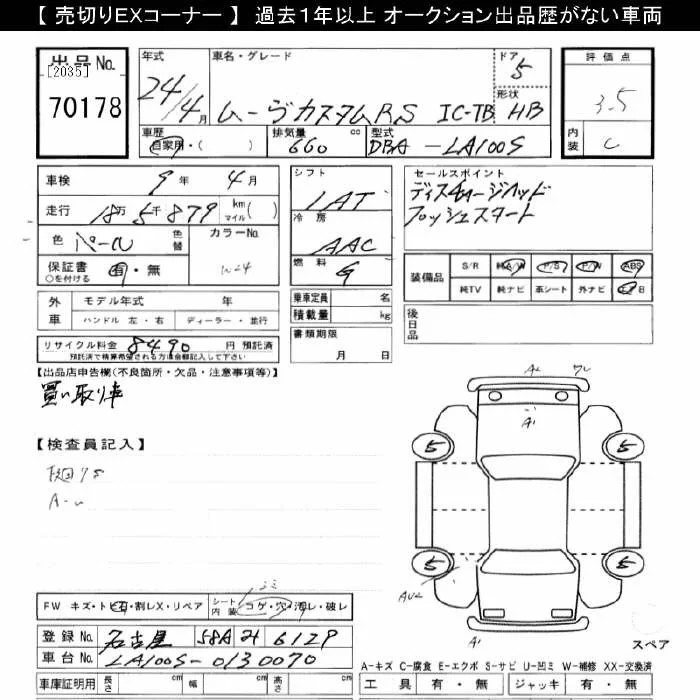 【 売切りEXコーナー 】 過去1年以上 オークション出品歴がない車両
出品No.
[2035]
70178
年式
24/4月
車名・グレード
ムーヴカスタムRS IC-TB
ドア
5
形状
HB
車歴
自家用・( )
排気量
660 cc
型式
DBA-LA100S
評価点
3.5
内装
C
車検 9年 4月
走行 18万 5千 879 km マイル( )
色 パール 色替
カラーNo.
W24
保証書 ○を付ける 有・無
外車 モデル年式 年
ハンドル 左・右 ディーラー・並行
リサイクル料金 8490 円 預託済
預託済で精算希望される方は金額記入して下さい
シフト
IAT
冷房
AAC
燃料
G
乗車定員 名
積載量 kg
書類期限
月 日
セールスポイント
ディスチャージヘッド
プッシュスタート
装備品 S/R 純A/W P/S P/W ABS
純TV 純ナビ 革シート 外ナビ エアB
後日品
【出品店申告欄(不良箇所・欠品・注意事項等)】
買い取り車
【検査員記入】
A-U
FW キズ・トビ石・割レX・リペア シート内装 コゲ・穴・汚レ・破レ
シミ
登録No. 名古屋 58A 6129
車台No. LA100S-0130070
車庫証明用 長さ cm 幅 cm 高さ cm
A1
A1
5
5
5
5
AU2
A1
スペア
A-キズ C-腐食 E-エクボ S-サビ U-凹ミ W-補修 XX-交換済
工具 有・無 ジャッキ 有・無